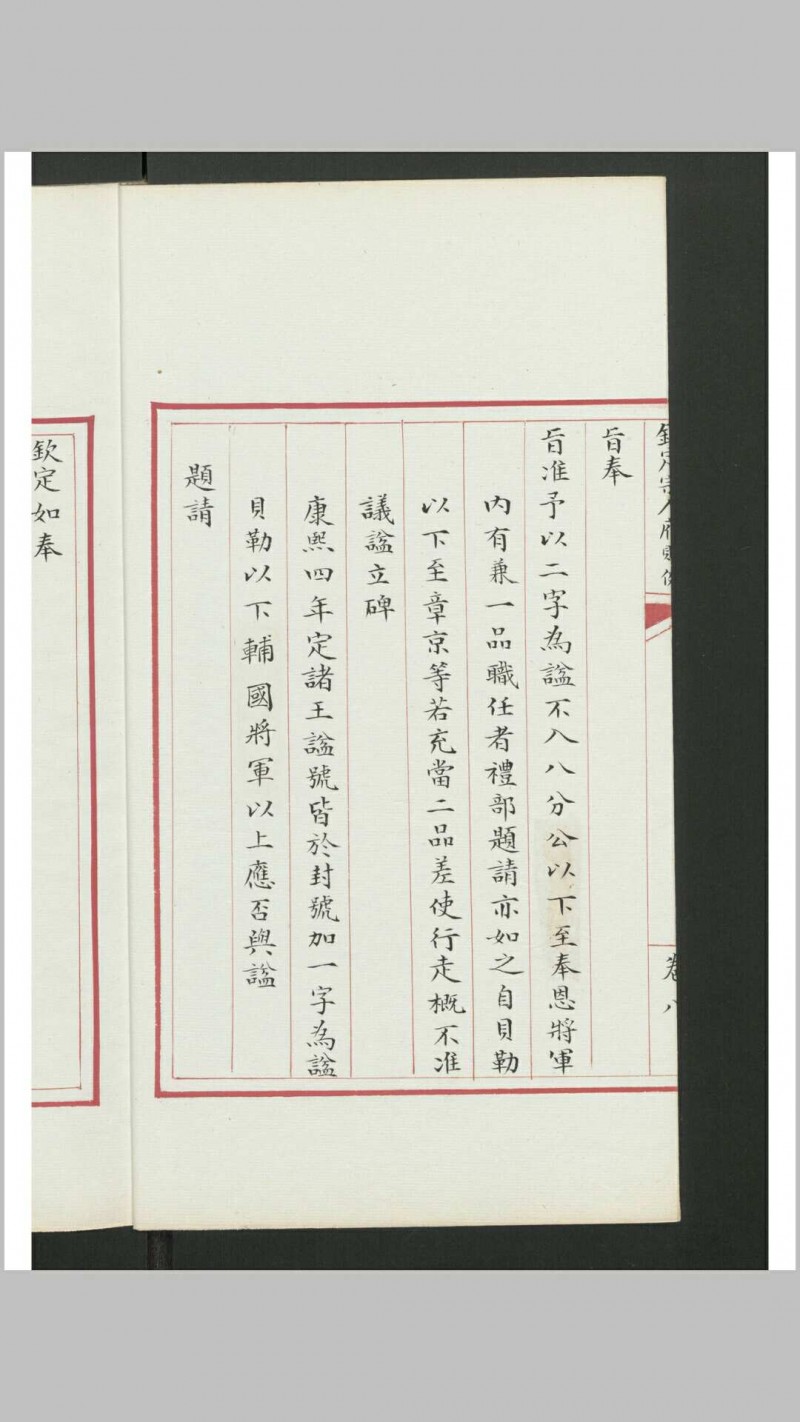 欽定宗人府則例
卷八
旨奉
旨准予以二字為諡不入八分公以下至奉恩將軍
內有兼一品職任者禮部題請亦如之自貝勒
以下至章京等若充當二品差使行走概不准
議諡立碑
康熙四年定諸王諡號皆於封號加一字為諡
貝勒以下輔國將軍以上應否與諡
題請
欽定如奉